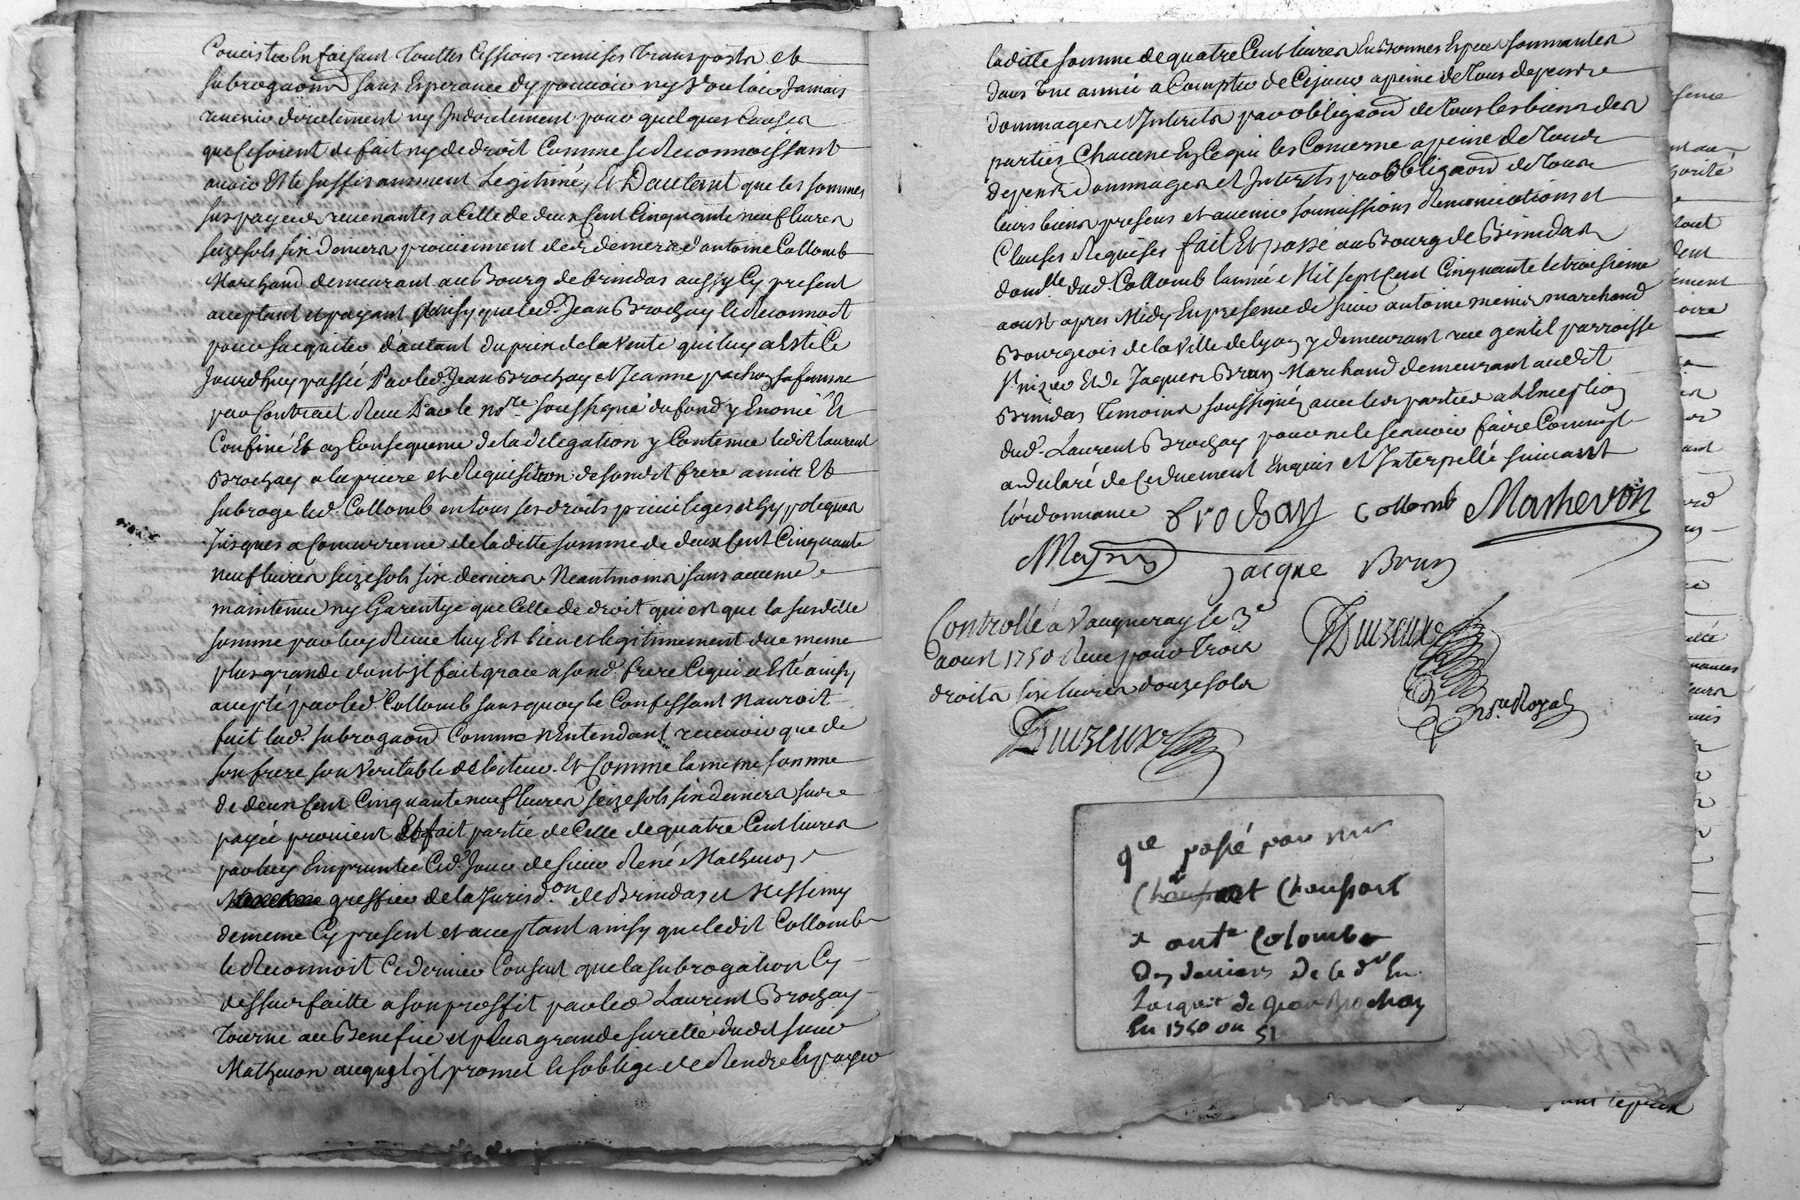 faisant touttes Cessions remises transports et
subrogaons sans Esperance dy pouvoir ny vouloir Jamais
revenir directement ny Indirectement pour quelques Causes
que ce soient de fait ny de droit Comme se Reconnoissant
avoir Esté suffisamment Legitimé, Et Dautant que les sommes
sus payees revenantes a Celle de deux Cent Cinquante neuf livres
seize sols six deniers proviennent des deniers d'antoine Collomb
Marchand demeurant au Bourg de brindas aussy Cy present
aceptant et payant ainsy que led. Jean Brochay le Reconnoit
pour sacquitter d'autant du prix de la vente qui luy a Esté Ce
Jourdhuy passée Par led. Jean Brochay et Jeanne sa femme
par Contrait Reçu Par le nore. soussigné du fond y Enoncé Et
Confiné Et en Consequence de la delegation y Contenue ledit laurent
Brochay a la priere et Requisition de sondit frere a mis Et
subrogé led. Collomb en tous ses droits privileges et hypoteques
Jusques a Concurrence de laditte somme de deux Cent Cinquante
neuf livres seize sols six deniers Neantmoins sans aucune
maintenue ny Garentye que Celle de droit qui est que la susditte
somme par luy Reçue luy Est bien et legitimement due meme
plus grande dont jl fait grace a sond. frere Ce qui a Esté ainsy
accepté par led Collomb sans quoy le Confessant nauroit
fait lad. subrogaon Comme nentendant recevoir que de
son frere son veritable debiteur. Et Comme la meme somme
de deux Cent Cinquante neuf livres seize sols six deniers sus
payée provient Et fait partie de Celle de quatre Cent livres
par luy Empruntée Ced. Jour de sieur René Mathevon
greffier de la Jurisd.on de Brindas et Messimy
de meme Cy present et aceptant ainsy que ledit Collomb
le Reconnoit Ce dernier Consent que la subrogation Cy
dessus faitte a son proffit par led Laurent Brochay
tourne au Benefice et plus grande sureté dudit sieur
Mathevon auquel jl promet et soblige de Rendre Et payer
laditte somme de quatre Cent livres En Bonnes Especes sonnantes
dans une année a Compter de Cejour a peine de tous depens
dommages et Interets par obligaon de tous les biens des
parties Chacune En Ce qui les Concerne a peine de tous
depens dommages et Interets par obligaon de tous
leurs biens presens et avenir soumissions Renonciations et
Clauses Requises fait Et passé au Bourg de Brindas
domlle dud. Collomb l'année Mil sept Cent Cinquante le troisieme
aoust apres Midy En presence de sieur antoine menis marchand
Bourgeois de la ville de lyon y demeurant rue gentil parroisse
St nizier Et de Jaques Brun Marchand demeurant audit
Brindas temoins soussignés avec les parties a l'Exception
dud. Laurent Brochay pour ne le scavoir faire Comme jl
a declaré de Ce duement Enquis et Interpellé suivant
l'ordonnance Brochay Collomb Mathevon
jacque Brun
Controllé a Vaugneray le 3e
aoust 1750 Reçu pour trois
droits six livres douze sols
nore Royal
qce passé par
Chausfart
a ante Colombe
Des deniers de
Lacquit de Jean Brochay
En 1750 ou 51